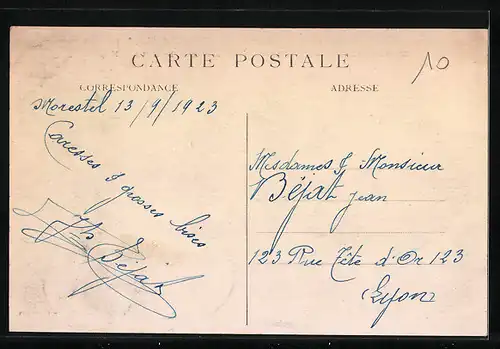 CARTE POSTALE
10
CORRESPONDANCE
ADRESSE
Morestel 13/9/1923
Caresses & grosses bises
Béjat
Mesdames & Monsieur
Béjat Jean
123 Rue Tête d'Or 123
Lyon